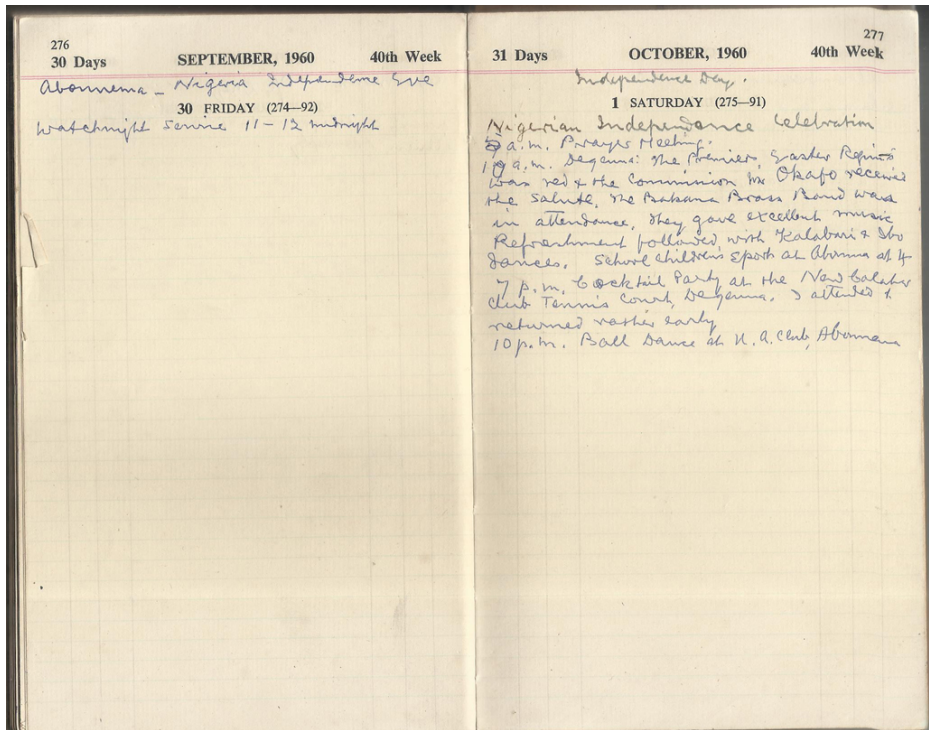 276
30 Days SEPTEMBER, 1960 40th Week
Abonnema - Nigeria Independence Eve
30 FRIDAY (274—92)
Watchnight Service 11-12 midnight
277
31 Days OCTOBER, 1960 40th Week
Independence Day.
1 SATURDAY (275—91)
Nigerian Independence Celebration
a.m. Prayer Meeting.
10 a.m. Degema: The Premier, Easter Region's
was red & the Commission Mr Okafo received
the Salute, The Bakana Brass Band was
in attendance, they gave excellent music
Refreshment followed, with Kalabari & Ibo
dances. School children's Sports at Abonnema at 4
7 p.m. Cocktail Party at the New Calabar
Club Tennis Court, Degema. I attended &
returned rather early
10 p.m. Ball Dance at N.A. Club, Abonnema